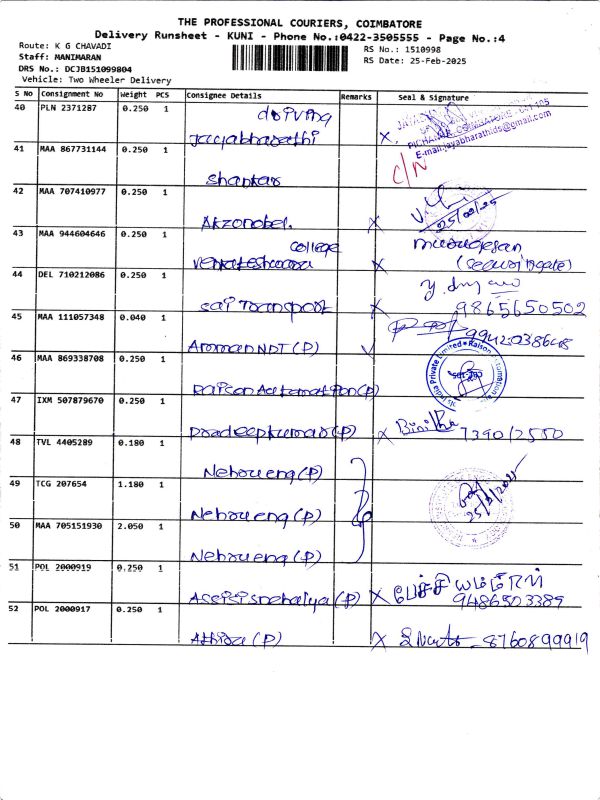 THE PROFESSIONAL COURIERS, COIMBATORE
Delivery Runsheet - KUNI - Phone No.:0422-3505555 - Page No.:4
Route: K G CHAVADI
RS No.: 1510998
Staff: MANIMARAN
RS Date: 25-Feb-2025
DRS No.: DCJB151099804
Vehicle: Two Wheeler Delivery
S No Consignment No Weight PCS Consignee Details Remarks Seal & Signature
40 PLN 2371287 0.250 1 driving
Jayabharathi X
E-mail:jayabharathids@gmail.com
41 MAA 867731144 0.250 1 C/N
Shankar
42 MAA 707410977 0.250 1 25/02/25
Akzonobel. X
43 MAA 944604646 0.250 1 college murugesan
Venkateshwara X (securitygate)
44 DEL 710212086 0.250 1
Sai Transport X 9865650502
45 MAA 111057348 0.040 1
46 MAA 869338708 0.250 1
Raison Automation (P)
47 IXM 507879670 0.250 1
Pradeepkumar (P) X
48 TVL 4405289 0.180 1
Nehru eng (P)
49 TCG 207654 1.180 1
Nehru eng (P)
50 MAA 705151930 2.050 1
Nehru eng (P)
51 POL 2000919 0.250 1
(P) X 9486503389
52 POL 2000917 0.250 1
Athira (P) X 8760899919